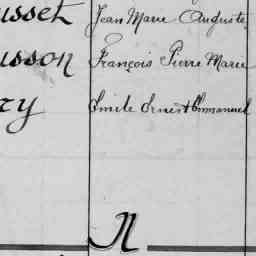 usset Jean Marie Auguste
usson François Pierre Marie
ry Emile Ernest Emmanuel
N